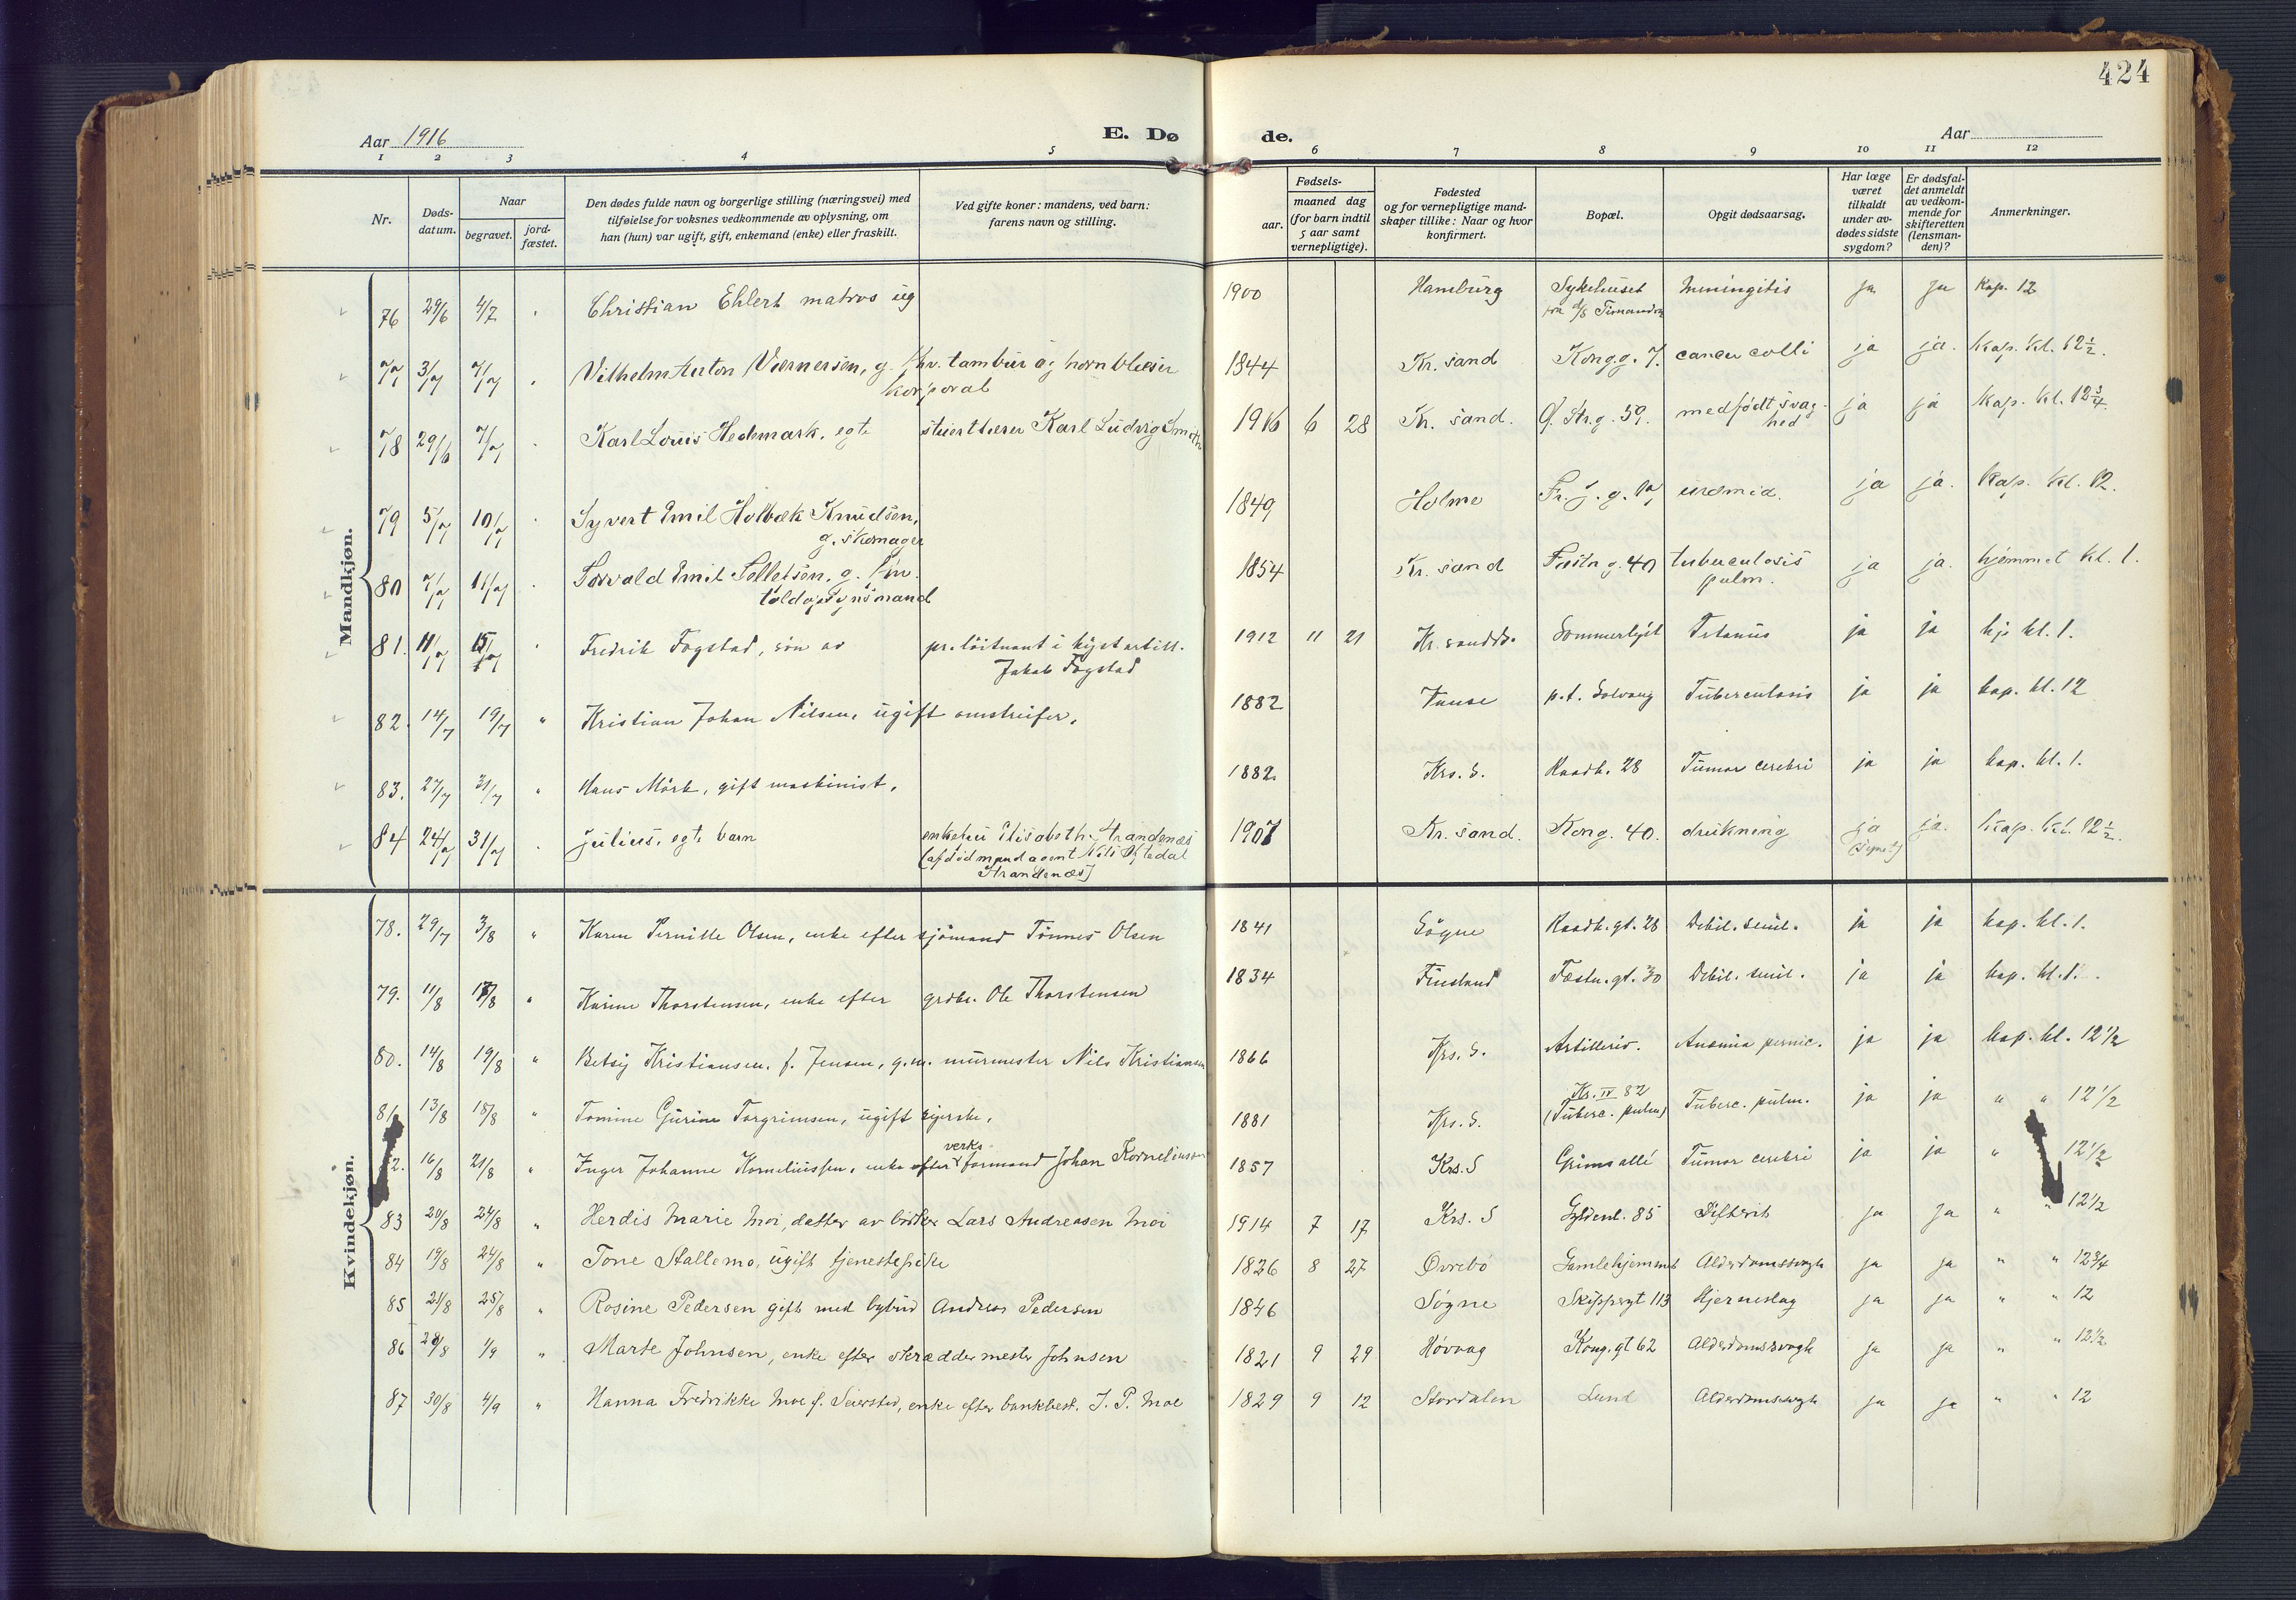 424
Aar 1916
E. Dø
de.
Aar
1 2 3 4 5 6 7 8 9 10 11 12
Nr.
Døds-
datum.
Naar
begravet.
jord-
fæstet.
Den dødes fulde navn og borgerlige stilling (næringsvei) med
tilføielse for voksnes vedkommende av oplysning, om
han (hun) var ugift, gift, enkemand (enke) eller fraskilt.
Ved gifte koner: mandens, ved barn:
farens navn og stilling.
Fødsels-
aar.
maaned dag
(for barn indtil
5 aar samt
vernepligtige).
Fødested
og for vernepligtige mand-
skaper tillike: Naar og hvor
konfirmert.
Bopæl.
Opgit dødsaarsag.
Har læge
været
tilkaldt
under av-
dødes sidste
sygdom?
Er dødsfal-
det anmeldt
av vedkom-
mende for
skifteretten
(lensman-
den)?
Anmerkninger.
Mandkjøn.
76 29/6 4/7 Christian Ehlert matros ug 1900 Hamburg Sykehuset Meningitis ja ja Kap. 12
fra d/s
77 3/7 7/7 Vilhelm Anton Værnersen, g. fhv. tambur og hornblæser 1844 Kr. sand Kongg. 7. cancer colli ja ja. Kap. kl. 12½.
korporal
78 29/6 7/7 Karl Louis Hedemark, egte 1916 6 28 Kr. sand. Ø. Str.g. 59. medfødt svag- ja ja Kap. kl. 12¾.
Karl Ludvig Smith
hed
79 5/7 10/7 Syvert Emil Holbæk Knudsen, 1849 Holme uræmia. ja ja. Kap. kl. 12.
g. skomager
80 7/7 11/7 Torvald Emil Tellefsen, g. fhv. 1854 Kr. sand Fæstn g. 40 tuberculosis ja ja. hjemmet kl. 1.
toldopsynsmand pulm.
81. 11/7 15/7 Fredrik Fogstad, søn av pr. løitnant i kystartill. 1912 11 21 Kr. sand Tetanus ja ja hj. kl. 1.
Jakob Fogstad
82. 14/7 19/7 " Kristian Johan Nilsen, ugift omstreifer. 1882 Vanse p.t. Solvang Tuberculosis ja ja kap. kl. 12
83. 27/7 31/7 " Hans Mörk, gift maskinist. 1882. Krs. S. Raadh. 28 Tumor cerebri ja ja kap. kl. 1.
84 24/7 31/7 Julius, egte barn enkefru Elisabeth Strandenæs 1907 Kr. sand. Kong. 40. drukning ja ja. Kap. kl. 12½.
(afdød mand agent Nils
Strandenæs)
Kvindekjøn.
78. 29/7 3/8 " Karen Pernille Olsen, enke efter sjömand Tönnes Olsen 1841 Sögne Raadh.gt. 28 Debil. senil. ja ja kap. kl. 1.
79. 11/8 17/8 " Karine Thorstensen, enke efter grdbr. Ole Thorstensen 1834 Finsland Fæstn.gt. 30 Debil. senil. ja ja kap. kl. 1.
80. 14/8 19/8 " Betsy Kristiansen, f. Jensen, g.m. murmester Nils Kristiansen 1866 Krs. S. Artilleriv. Anæmia pernic. ja ja kap. kl. 12½
81. 13/8 18/8 " Tomine Gurine Torgrimsen, ugift syerske. 1881 Krs. S. Kr. IV 82 Tuberc. pulm. ja ja " " 12½
(Tuberc. pulm)
2. 16/8 21/8 " Inger Johanne Korneliussen, enke efter verksformand Johan Korneliussen 1857 Krs. S Grimsallé Tumor cerebri ja ja " 12½
83 20/8 24/8 " Herdis Marie Moi, datter av bødker Lars Andreasen Moi 1914 7 17 Krs. S Gyldenl. 85 Difterit ja ja " " 12½
84 19/8 24/8 " Tone Stallemo, ugift tjenestepike 1826 8 27 Øvrebö Gamlehjemmet Alderdomssvagh ja ja " " 12¾
85 21/8 25/8 " Rosine Pedersen gift med bybud Andreas Pedersen 1846 Søgne Skippergt 113 Hjerneslag ja ja " " 12
86 28/8 1/9 " Marte Johnsen, enke efter skræddermester Johnsen 1821 9 29 Høvaag Kong.gt 62 Alderdomssvagh ja ja " " 12½
87 30/8 4/9 " Hanna Fredrikke Moe f. Seiersted, enke efter bankbest. J. P. Moe 1829 9 12 Stordalen Lund Alderdomssvagh ja ja " " 12